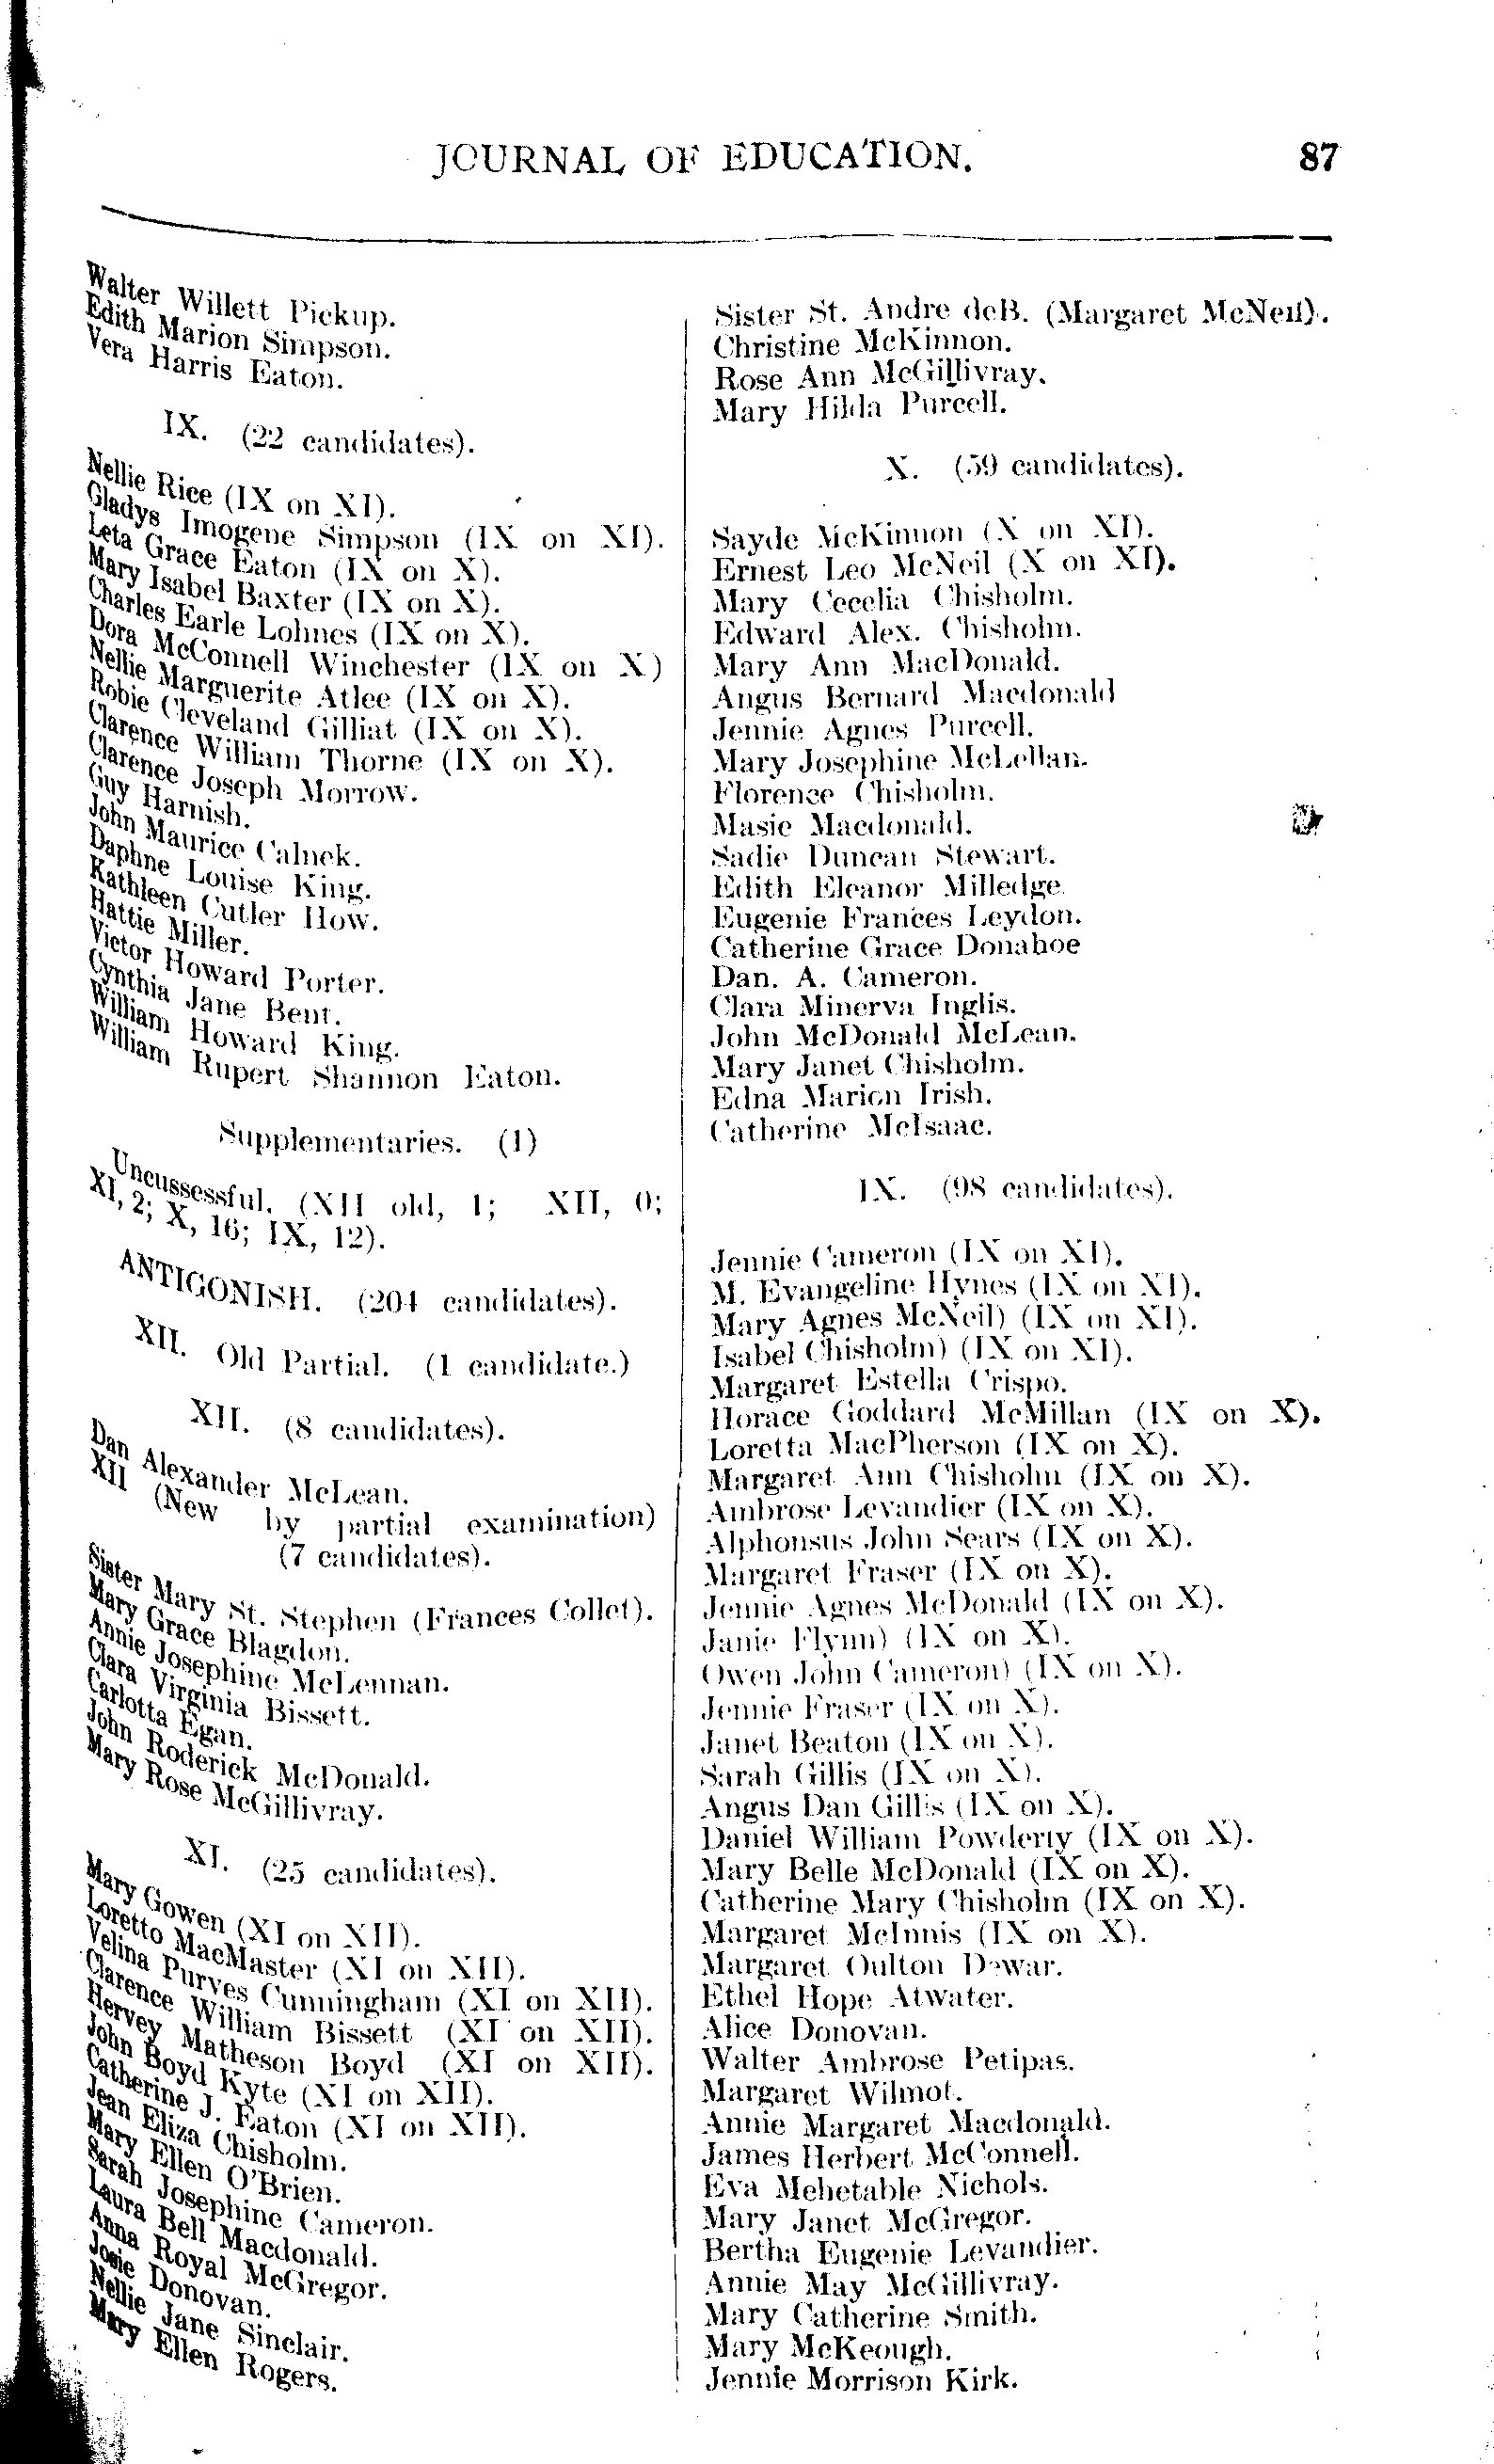 JOURNAL OF EDUCATION.
87
Walter Willett Pickup.
Edith Marion Simpson.
Vera Harris Eaton.
IX. (22 candidates).
Nellie Rice (IX on XI).
Gladys Imogene Simpson (IX on XI).
Leta Grace Eaton (IX on X).
Mary Isabel Baxter (IX on X).
Charles Earle Lohnes (IX on X).
Dora McConnell Winchester (IX on X)
Nellie Marguerite Atlee (IX on X).
Robie Cleveland Gilliat (IX on X).
Clarence William Thorne (IX on X).
Clarence Joseph Morrow.
Guy Harnish.
John Maurice Calnek.
Daphne Louise King.
Kathleen Cutler How.
Hattie Miller.
Victor Howard Porter.
Cynthia Jane Bent.
William Howard King.
William Rupert Shannon Eaton.
Supplementaries. (1)
Uncussessful. (XII old, 1; XII, 0;
XI, 2; X, 16; IX, 12).
ANTIGONISH. (204 candidates).
XII. Old Partial. (1 candidate.)
XII. (8 candidates).
Dan Alexander McLean.
XII (New by partial examination)
(7 candidates).
Sister Mary St. Stephen (Frances Collet).
Mary Grace Blagdon.
Annie Josephine McLennan.
Clara Virginia Bissett.
Carlotta Egan.
John Roderick McDonald.
Mary Rose McGillivray.
XI. (25 candidates).
Mary Gowen (XI on XII).
Loretto MacMaster (XI on XII).
Velina Purves Cunningham (XI on XII).
Clarence William Bissett (XI on XII).
Hervey Matheson Boyd (XI on XII).
John Boyd Kyte (XI on XII).
Catherine J. Eaton (XI on XII).
Jean Eliza Chisholm.
Mary Ellen O'Brien.
Sarah Josephine Cameron.
Laura Bell Macdonald.
Anna Royal McGregor.
Josie Donovan.
Nellie Jane Sinclair.
Mary Ellen Rogers.
Sister St. Andre deB. (Margaret McNeil).
Christine McKinnon.
Rose Ann McGillivray.
Mary Hilda Purcell.
X. (59 candidates).
Sayde McKinnon (X on XI).
Ernest Leo McNeil (X on XI).
Mary Cecelia Chisholm.
Edward Alex. Chisholm.
Mary Ann MacDonald.
Angus Bernard Macdonald
Jennie Agnes Purcell.
Mary Josephine McLellan.
Florence Chisholm.
Masie Macdonald.
Sadie Duncan Stewart.
Edith Eleanor Milledge.
Eugenie Frances Leydon.
Catherine Grace Donahoe
Dan. A. Cameron.
Clara Minerva Inglis.
John McDonald McLean.
Mary Janet Chisholm.
Edna Marion Irish.
Catherine McIsaac.
IX. (98 candidates).
Jennie Cameron (IX on XI).
M. Evangeline Hynes (IX on XI).
Mary Agnes McNeil) (IX on XI).
Isabel Chisholm) (IX on XI).
Margaret Estella Crispo.
Horace Goddard McMillan (IX on X).
Loretta MacPherson (IX on X).
Margaret Ann Chisholm (IX on X).
Ambrose Levandier (IX on X).
Alphonsus John Sears (IX on X).
Margaret Fraser (IX on X).
Jennie Agnes McDonald (IX on X).
Janie Flynn) (IX on X).
Owen John Cameron) (IX on X).
Jennie Fraser (IX on X).
Janet Beaton (IX on X).
Sarah Gillis (IX on X).
Angus Dan Gillis (IX on X).
Daniel William Powderly (IX on X).
Mary Belle McDonald (IX on X).
Catherine Mary Chisholm (IX on X).
Margaret McInnis (IX on X).
Margaret Oulton Dewar.
Ethel Hope Atwater.
Alice Donovan.
Walter Ambrose Petipas.
Margaret Wilmot.
Annie Margaret Macdonald.
James Herbert McConnell.
Eva Mehetable Nichols.
Mary Janet McGregor.
Bertha Eugenie Levandier.
Annie May McGillivray.
Mary Catherine Smith.
Mary McKeough.
Jennie Morrison Kirk.